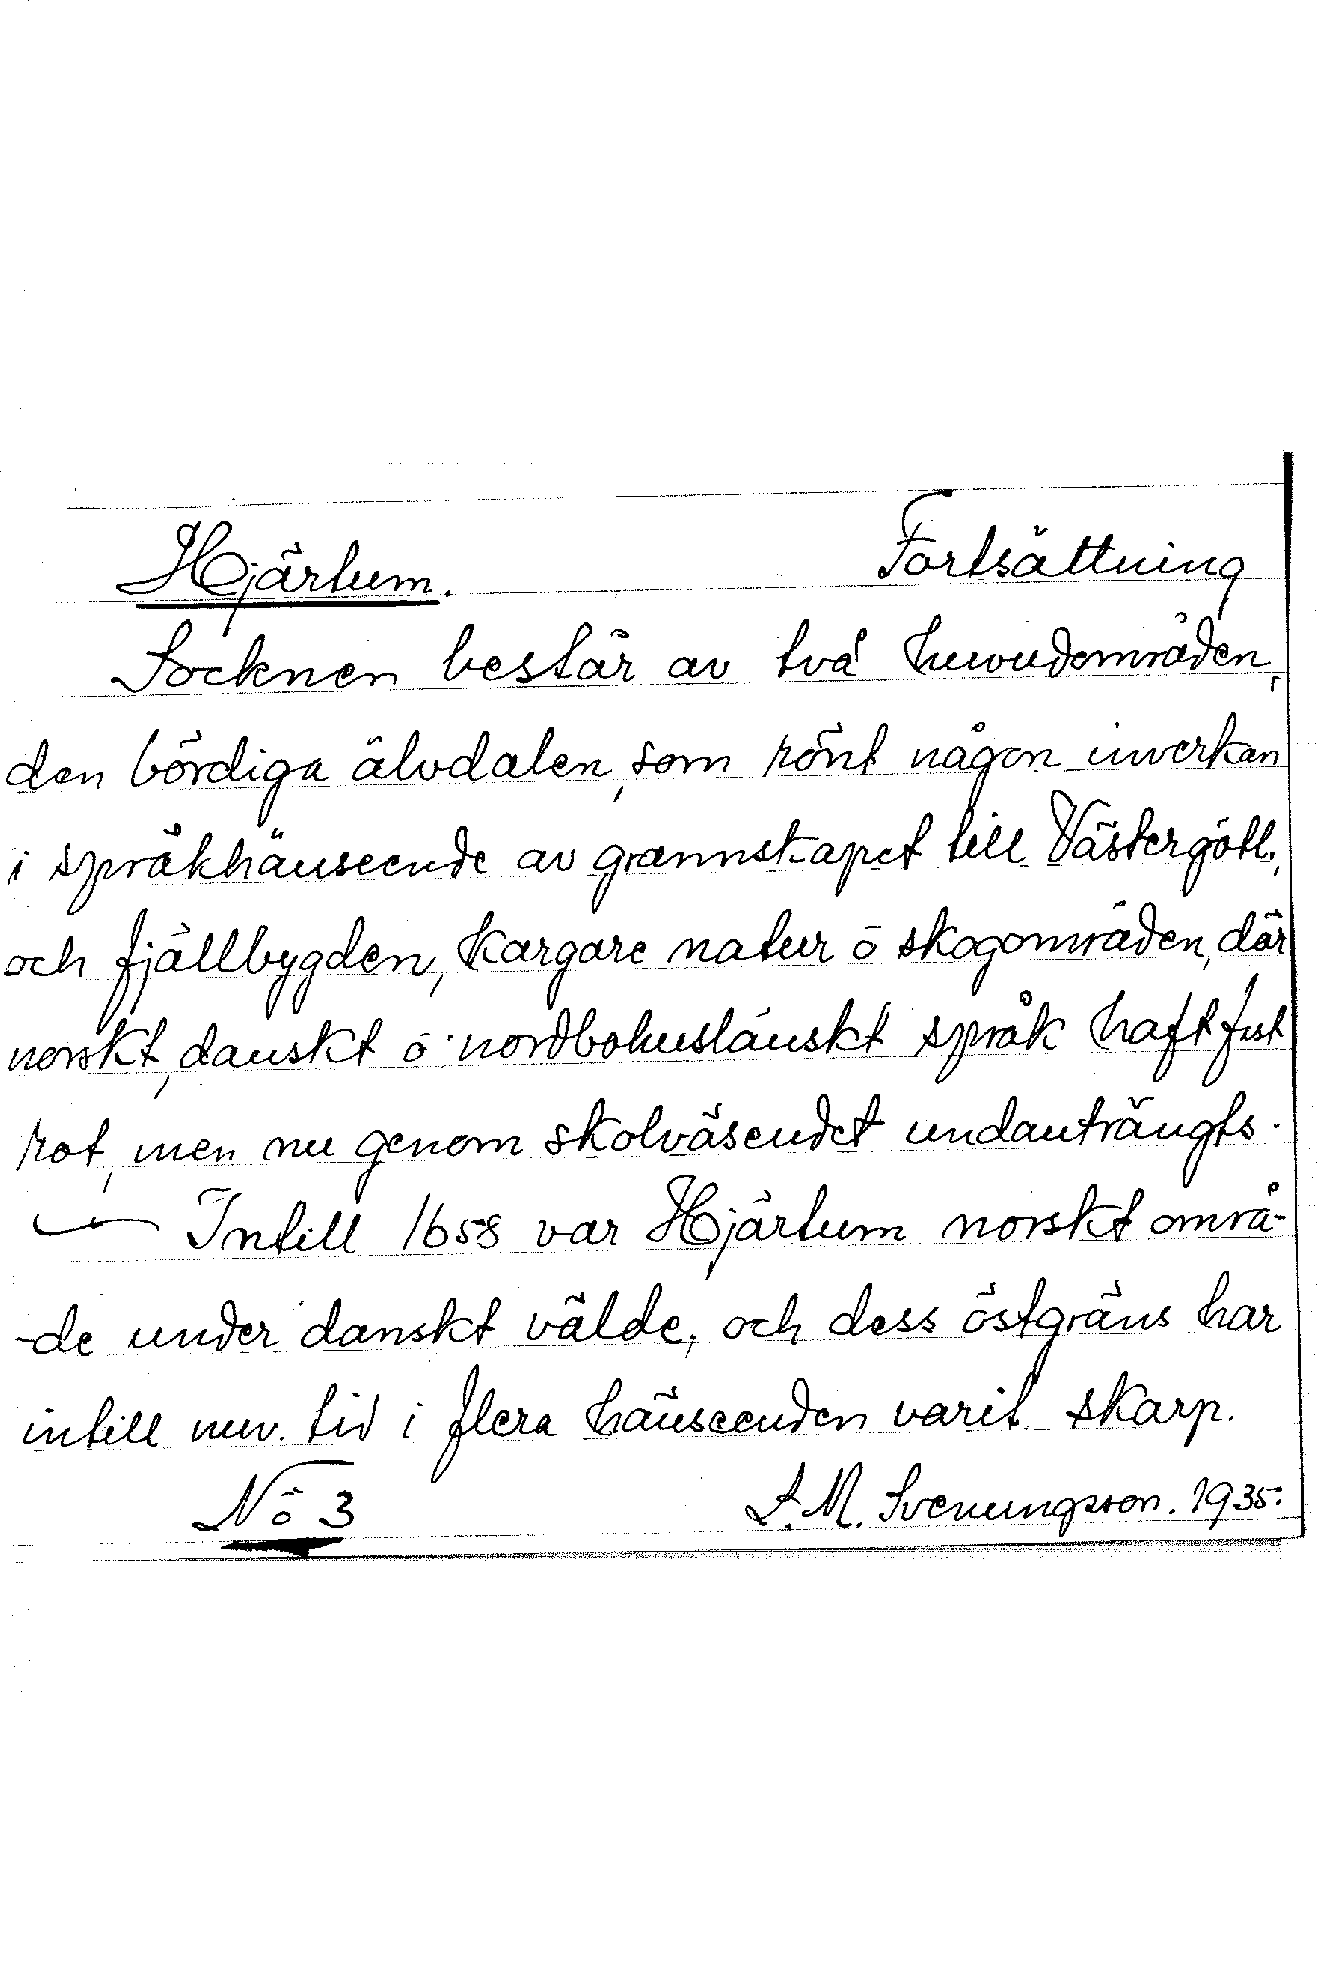 Hjärtum. Fortsättning
Socknen består av två huvudområden,
den bördiga älvdalen, som rönt någon inverkan
i språkhänseende av grannskapet till Västergötl.,
och fjällbygden, kargare natur o skogområden, där
norskt, danskt o nordbohuslänskt språk haft fast
rot, men nu genom skolväsendet undanträngts.
— Intill 1658 var Hjärtum norskt områ-
-de under danskt välde, och dess östgräns har
intill nuv. tid i flera hänseenden varit skarp.
No 3 L. M. Svenungsson. 1935.